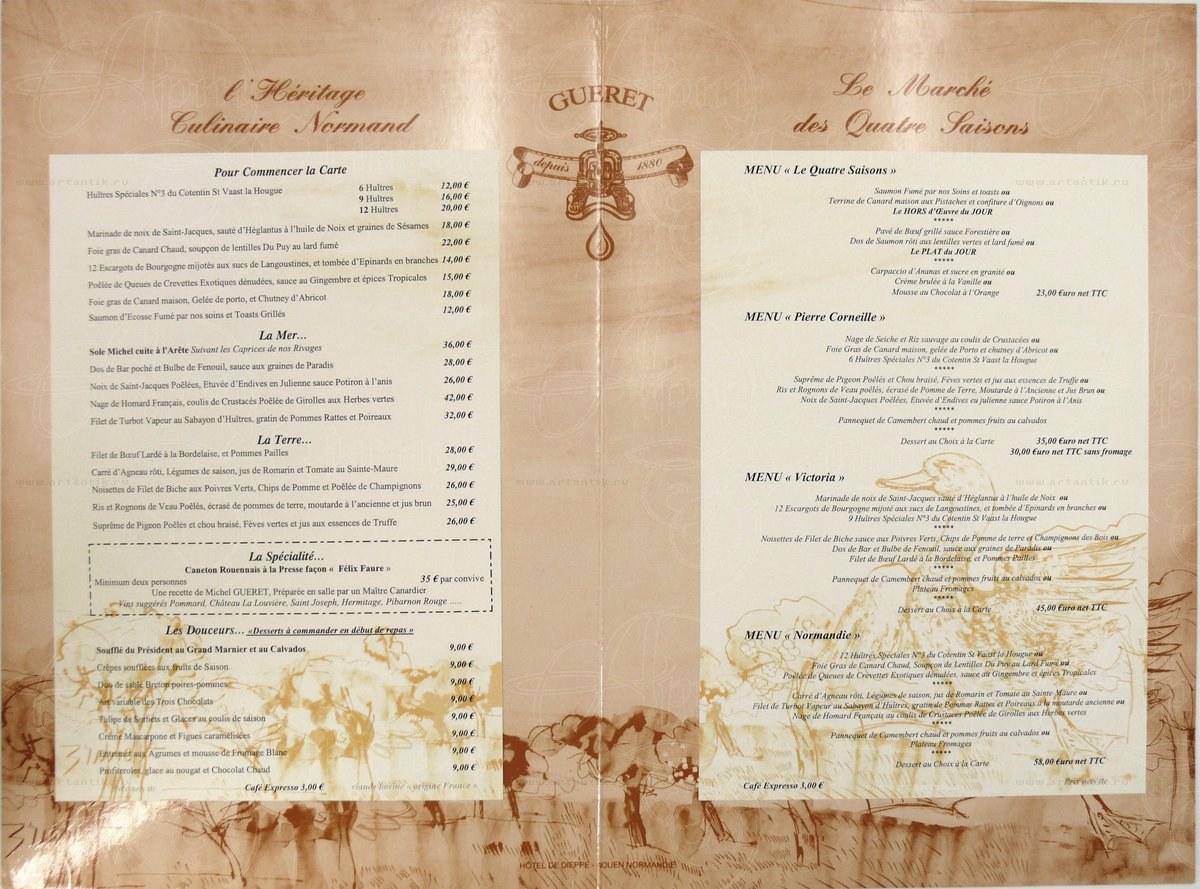 l'Héritage
Culinaire Normand
Pour Commencer la Carte
Huîtres Spéciales N°3 du Cotentin St Vaast la Hougue 6 Huîtres 12,00 €
9 Huîtres 16,00 €
12 Huîtres 20,00 €
Marinade de noix de Saint-Jacques, sauté d'Héglantus à l'huile de Noix et graines de Sésames 18,00 €
Foie gras de Canard Chaud, soupçon de lentilles Du Puy au lard fumé 22,00 €
12 Escargots de Bourgogne mijotés aux sucs de Langoustines, et tombée d'Epinards en branches 14,00 €
Poêlée de Queues de Crevettes Exotiques dénudées, sauce au Gingembre et épices Tropicales 15,00 €
Foie gras de Canard maison, Gelée de porto, et Chutney d'Abricot 18,00 €
Saumon d'Ecosse Fumé par nos soins et Toasts Grillés 12,00 €
La Mer…
Sole Michel cuite à l'Arête Suivant les Caprices de nos Rivages 36,00 €
Dos de Bar poché et Bulbe de Fenouil, sauce aux graines de Paradis 28,00 €
Noix de Saint-Jacques Poêlées, Etuvée d'Endives en Julienne sauce Potiron à l'anis 26,00 €
Nage de Homard Français, coulis de Crustacés Poêlée de Girolles aux Herbes vertes 42,00 €
Filet de Turbot Vapeur au Sabayon d'Huîtres, gratin de Pommes Rattes et Poireaux 32,00 €
La Terre…
Filet de Bœuf Lardé à la Bordelaise, et Pommes Pailles 28,00 €
Carré d'Agneau rôti, Légumes de saison, jus de Romarin et Tomate au Sainte-Maure 29,00 €
Noisettes de Filet de Biche aux Poivres Verts, Chips de Pomme et Poêlée de Champignons 26,00 €
Ris et Rognons de Veau Poêlés, écrasé de pommes de terre, moutarde à l'ancienne et jus brun 25,00 €
Suprême de Pigeon Poêlés et chou braisé, Fèves vertes et jus aux essences de Truffe 26,00 €
La Spécialité…
Caneton Rouennais à la Presse façon « Félix Faure »
Minimum deux personnes 35 € par convive
Une recette de Michel GUERET, Préparée en salle par un Maître Canardier
Vins suggérés Pommard, Château La Louvière, Saint Joseph, Hermitage, Pibarnon Rouge …..
Les Douceurs… «Desserts à commander en début de repas »
Soufflé du Président au Grand Marnier et au Calvados 9,00 €
Crêpes soufflées aux fruits de Saison 9,00 €
Duo de sablé Breton poires-pommes 9,00 €
Art variable des Trois Chocolats 9,00 €
Tulipe de Sorbets et Glaces au coulis de saison 9,00 €
Crème Mascarpone et Figues caramélisées 9,00 €
Entremet aux Agrumes et mousse de Fromage Blanc 9,00 €
Profiteroles, glace au nougat et Chocolat Chaud 9,00 €
Café Expresso 3,00 € viande bovine « origine France »
GUERET
depuis 1880
HÔTEL DE DIEPPE - ROUEN NORMANDIE
Le Marché
des Quatre Saisons
MENU « Le Quatre Saisons »
Saumon Fumé par nos Soins et toasts ou
Terrine de Canard maison aux Pistaches et confiture d'Oignons ou
Le HORS d'Œuvre du JOUR
*****
Pavé de Bœuf grillé sauce Forestière ou
Dos de Saumon rôti aux lentilles vertes et lard fumé ou
Le PLAT du JOUR
*****
Carpaccio d'Ananas et sucre en granité ou
Crème brulée à la Vanille ou
Mousse au Chocolat à l'Orange 23,00 €uro net TTC
MENU « Pierre Corneille »
Nage de Seiche et Riz sauvage au coulis de Crustacées ou
Foie Gras de Canard maison, gelée de Porto et chutney d'Abricot ou
6 Huîtres Spéciales N°3 du Cotentin St Vaast la Hougue
*****
Suprême de Pigeon Poêlés et Chou braisé, Fèves vertes et jus aux essences de Truffe ou
Ris et Rognons de Veau poêlés, écrasé de Pomme de Terre, Moutarde à l'Ancienne et Jus Brun ou
Noix de Saint-Jacques Poêlées, Etuvée d'Endives eu julienne sauce Potiron à l'Anis
*****
Pannequet de Camembert chaud et pommes fruits au calvados
*****
Dessert au Choix à la Carte 35,00 €uro net TTC
30,00 €uro net TTC sans fromage
MENU « Victoria »
Marinade de noix de Saint-Jacques sauté d'Héglantus à l'huile de Noix ou
12 Escargots de Bourgogne mijoté aux sucs de Langoustines, et tombée d'Epinards en branches ou
9 Huîtres Spéciales N°3 du Cotentin St Vaast la Hougue
*****
Noisettes de Filet de Biche sauce aux Poivres Verts, Chips de Pomme de terre et Champignons des Bois ou
Dos de Bar et Bulbe de Fenouil, sauce aux graines de Paradis ou
Filet de Bœuf Lardé à la Bordelaise, et Pommes Pailles
*****
Pannequet de Camembert chaud et pommes fruits au calvados ou
Plateau Fromages
*****
Dessert au Choix à la Carte 45,00 €uro net TTC
MENU « Normandie »
12 Huîtres Spéciales N°3 du Cotentin St Vaast la Hougue ou
Foie Gras de Canard Chaud, Soupçon de Lentilles Du Puy au Lard Fumé ou
Poêlée de Queues de Crevettes Exotiques dénudées, sauce au Gingembre et épices Tropicales
*****
Carré d'Agneau rôti, Légumes de saison, jus de Romarin et Tomate au Sainte Maure ou
Filet de Turbot Vapeur au Sabayon d'Huîtres, gratin de Pommes Rattes et Poireaux à la moutarde ancienne ou
Nage de Homard Français au coulis de Crustaces Poêlée de Girolles aux Herbes vertes
*****
Pannequet de Camembert chaud et pommes fruits au calvados ou
Plateau Fromages
*****
Dessert au Choix à la Carte 58,00 €uro net TTC
Café Expresso 3,00 € Prix nets ttc
www.artantik.ru